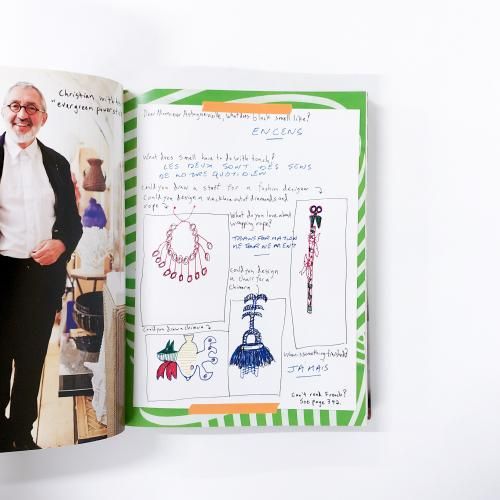 Christian with his
"evergreen power st
Dear Monsieur Astuguevieille, what does black smell like?
ENCENS
What does smell have to do with touch?
LES DEUX SONT DES SENS
DE NOTRE QUOTIDIEN
Could you draw a staff for a fashion designer
Could you design a necklace out of diamonds and
rope
What do you love about
wrapping rope?
TRANSFORMATION
Could you design
a chair for a
chimera
Could you draw a chimera
When is something finished?
JAMAIS
Can't read French?
See page 342.